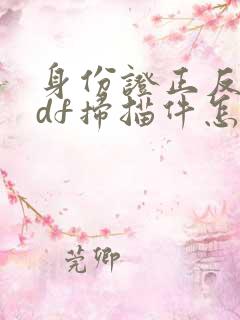 身份證正反
df掃描件怎
莞卿